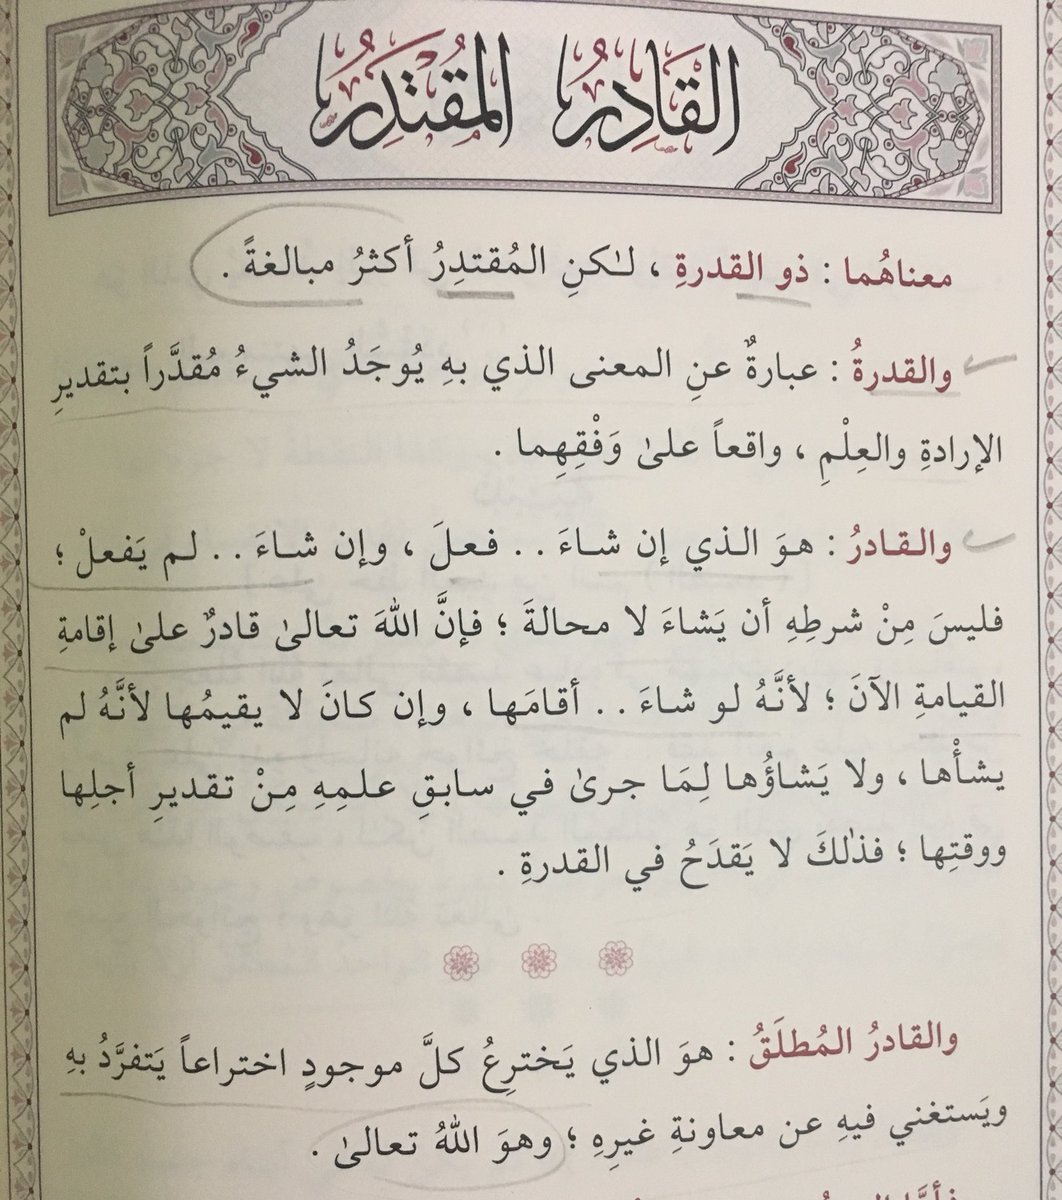 القَادِرُ المُقْتَدِرُ
معناهُما : ذو القدرةِ ، لـٰكنِ المُقتدِرُ أكثرُ مبالغةً .
والقدرةُ : عبارةٌ عنِ المعنى الذي بهِ يُوجَدُ الشيءُ مُقدَّراً بتقديرِ
الإرادةِ والعِلْمِ ، واقعاً علىٰ وَفْقِهِما .
والقادرُ : هوَ الذي إن شاءَ . . فعلَ ، وإن شاءَ . . لم يَفعلْ ؛
فليسَ مِنْ شرطِهِ أن يَشاءَ لا محالةَ ؛ فإنَّ اللهَ تعالىٰ قادرٌ علىٰ إقامةِ
القيامةِ الآنَ ؛ لأنَّهُ لو شاءَ . . أقامَها ، وإن كانَ لا يقيمُها لأنَّهُ لم
يشأْها ، ولا يَشاؤُها لِمَا جرىٰ في سابقِ علمِهِ مِنْ تقديرِ أجلِها
ووقتِها ؛ فذٰلكَ لا يَقدَحُ في القدرةِ .
والقادرُ المُطلَقُ : هوَ الذي يَخترِعُ كلَّ موجودٍ اختراعاً يَتفرَّدُ بهِ
ويَستغني فيهِ عن معاونةِ غيرِهِ ؛ وهوَ اللهُ تعالىٰ .